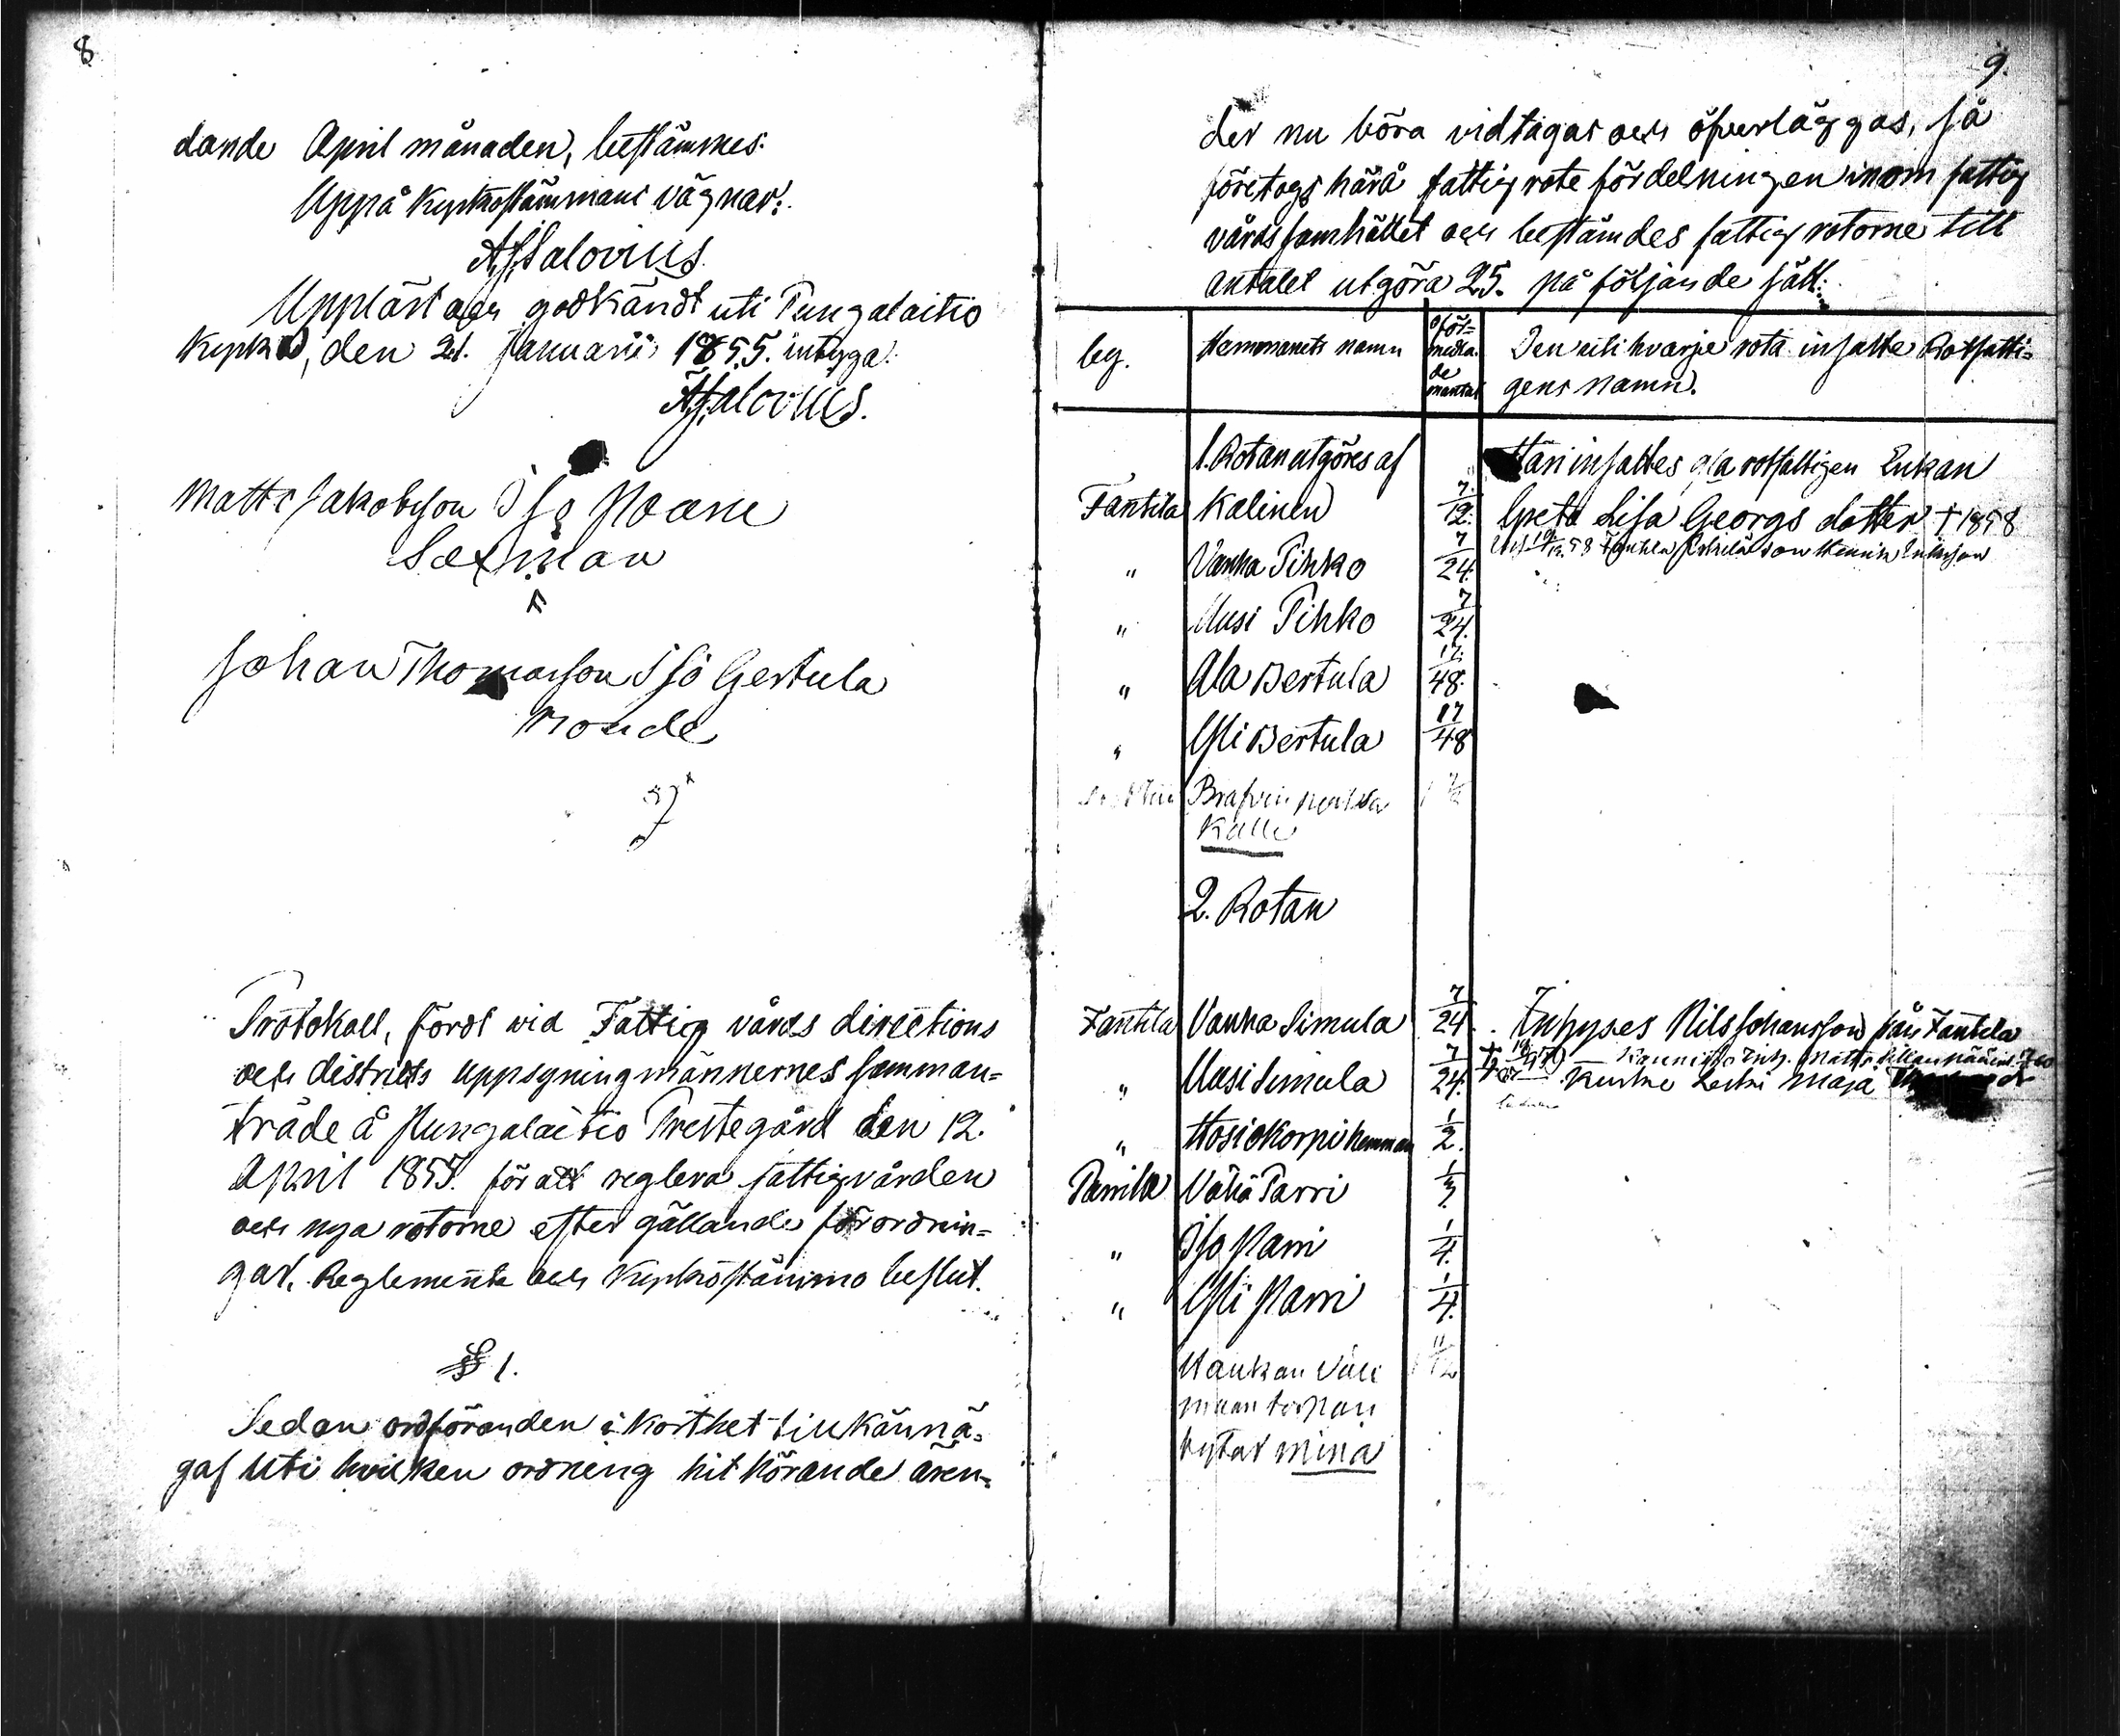 8
dande April månaden, bestämmes.
Uppå Kyrkostämmans vägnar:
A. J. Salovius.
Uppläst och godkändt uti Pungalaitio
Kyrka, den 21. Januarii 1855. intyga:
A. J. Salovius.
Matts Jakobsson Iso
Sexman
Johan Thomasson Iso Gertula
Protokoll, fördt wid Fattig vårds directions
och districts uppsyningmännernes samman=
träde å Pungalaitio Prestegård den 12.
April 1855. för att reglera fattigvården
och nya rotorne efter gällande förordnin=
gar, Reglemente och Kyrkostämmo beslut.
§ 1.
Sedan ordföranden i korthet tillkännä=
gaf uti hvilken ordning hit hörande ären=
9.
der nu böra vidtagas och öfverläggas, så
företogs härå fattig rote fördelningen inom fattig
vårds samhället och bestämdes fattig rotorne till
antalet utgöra 25. på följande sätt:
by. Hemmanets namn oförmedlade mantal Den uti hvarje rota insatte Rotfatti=
gens namn.
1. Rotan utgöres af Häri insattes rotfattigen Enkan
Fantila Kalinen 7/12. Greta Lisa Georgs dotter † 1858
" Vanha Pihko 7/24.
" Uusi Pihko 7/24.
" Ala Bertula 17/48.
" Yli Bertula 17/48
Kalle
2. Rotan
Fantila Vanha Simula 7/24. Inhyses Nils Johansson från Fantila
" Uusi Simula 7/24. Maja
" Hosiokorpi hemman 1/2.
Parrila Vähä Parri 1/3.
" Iso Parri 1/4.
" Yli Parri 1/4.
mina